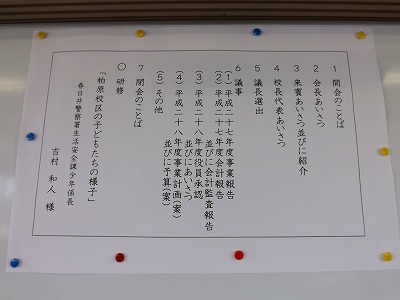 1 開会のことば
2 会長あいさつ
3 来賓あいさつ並びに紹介
4 校長代表あいさつ
5 議長選出
6 議事
(1)平成二十七年度事業報告
(2)平成二十七年度会計報告
並びに会計監査報告
(3)平成二十八年度役員承認
並びにあいさつ
(4)平成二十八年度事業計画(案)
並びに予算(案)
(5)その他
7 閉会のことば
〇 研修
「柏原校区の子どもたちの様子」
春日井警察署生活安全課少年係長
吉村 和人 様